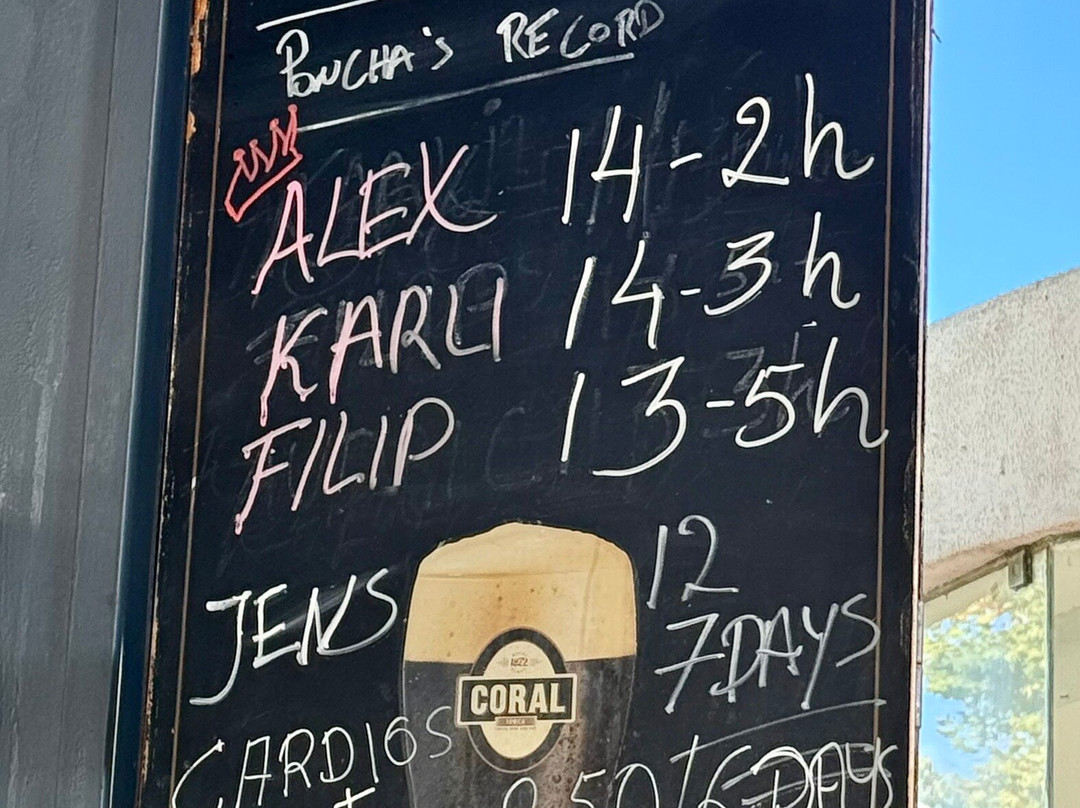 PONCHA'S RECORD
ALEX 14-2h
KARLI 14-3h
FILIP 13-5h
JENS 12
7DAYS
1872
CORAL
CARDIGS
250/6 DAYS